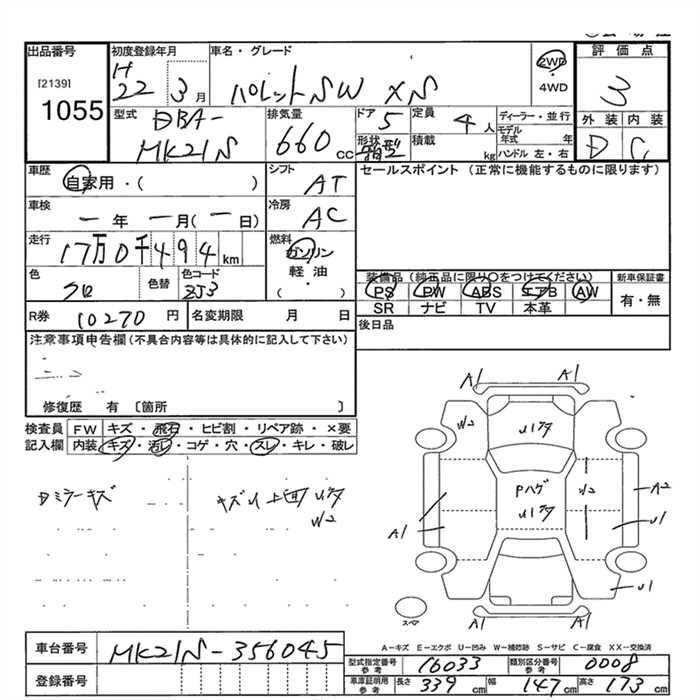 出品番号
[2139]
1055
初度登録年月
H
22 3月
車名・グレード
パレットSW XS
2WD
・
4WD
評価点
3
外装 内装
D C
型式
DBA-
MK21S
排気量
660 cc
ドア
5
形状
箱型
定員
4人
積載
kg
ディーラー・並行
モデル年式 年
ハンドル 左・右
車歴
自家用・( )
シフト
AT
車検
一年 一月(一日)
冷房
AC
走行
17万0千494km
燃料
ガソリン
軽油・
( )
色
クロ
色替
色コード
ZJ3
R券 10270円
名変期限 月 日
セールスポイント(正常に機能するものに限ります)
装備品(純正品に限り〇をつけてください)
PS PW ABS エアB AW
SR ナビ TV 本革
新車保証書
有・無
後日品
注意事項申告欄(不具合内容等は具体的に記入して下さい)
修復歴 有 〔箇所 〕
検査員
記入欄
FW キズ・飛石・ヒビ割・リペア跡・×要
内装 キズ・汚レ・コゲ・穴・スレ・キレ・破レ
ミラーキズ
キズU 上面
W2
A1 A1
W2
Pハゲ
W2
A2
A1
U1
U1
スペア
A1 A1
A-キズ E-エクボ U-凹み W-補修跡 S-サビ C-腐食 XX-交換済
車台番号 MK21S-356045
登録番号
型式指定番号 参考 16033
類別区分番号 参考 0008
車庫証明用 参考 長さ 339cm 幅 147cm 高さ 173cm